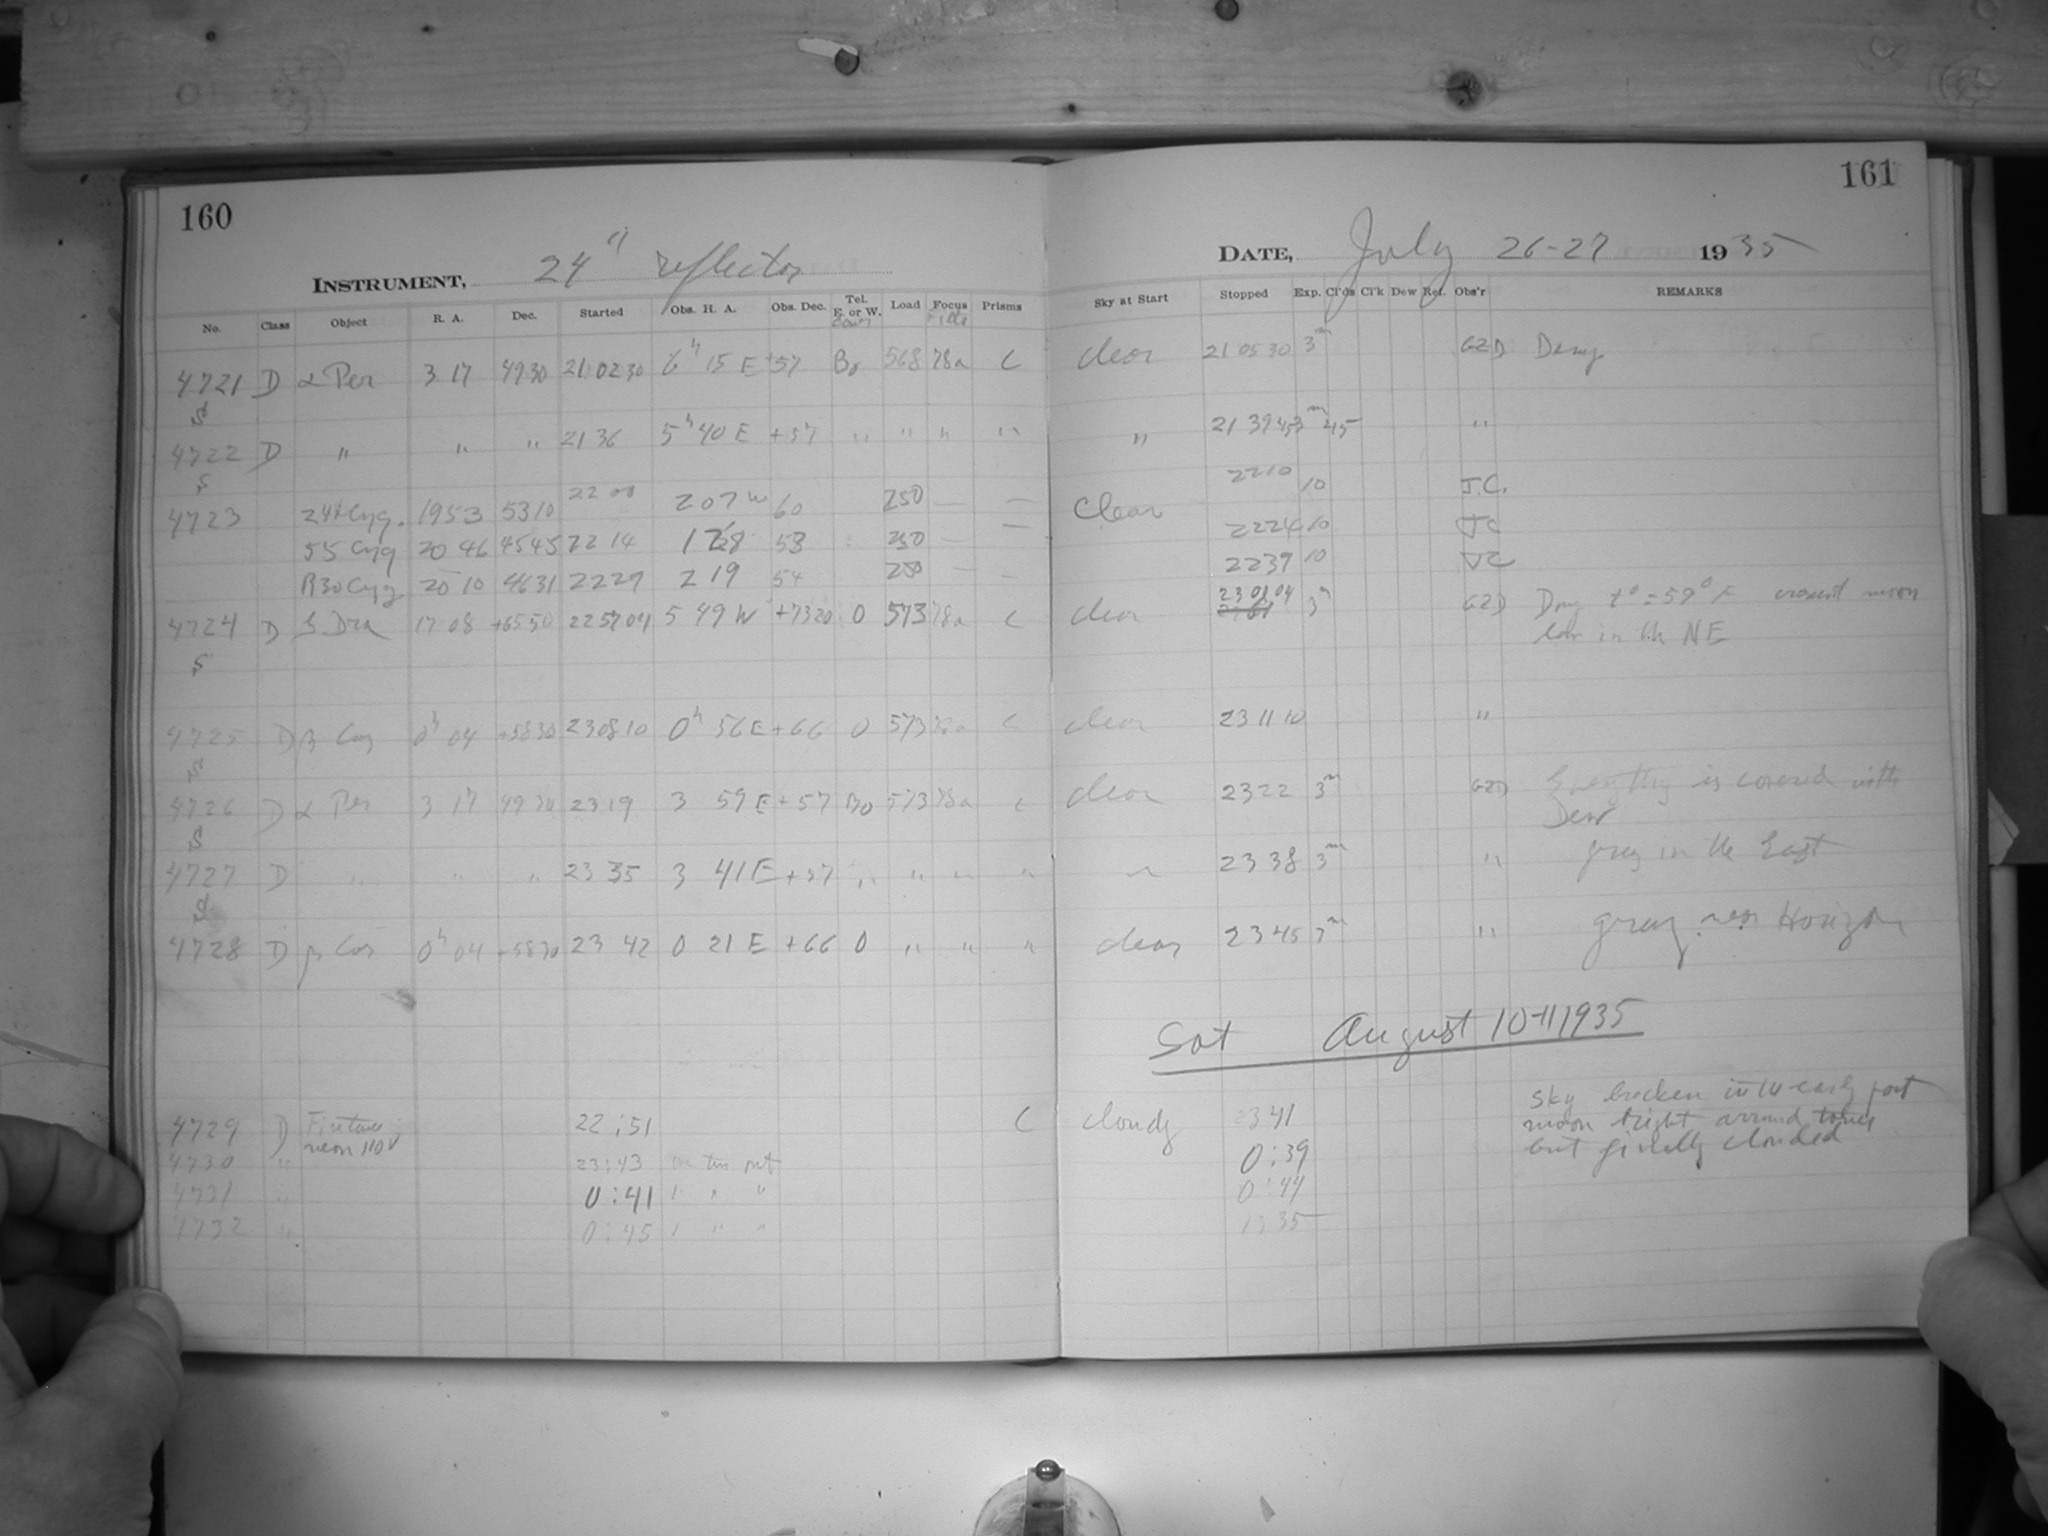 160
INSTRUMENT, 24" reflector
No. Class Object R. A. Dec. Started Obs. H. A. Obs. Dec. Tel. E. or W. Load Focus Prisms
4721 D α Per 3 17 49 30 21 02 30 6h 15 E +57 Bo 568 78a C
S
4722 D " " " 21 36 5h 40 E +57 " " " "
S
4723 24 Cyg. 1953 5310 22 00 2 07 W 60 250 — —
55 Cyg 20 46 4545 22 14 1 28 53 250 — —
B30 Cyg 20 10 4631 2229 2 19 54 250 — —
4724 D ζ Dra 17 08 +6550 225704 5 49 W +7320 0 573 78a C
S
4725 D β Cas 0h 04 +5830 230810 0h 56 E +66 0 573 78a C
S
4726 D α Per 3 17 49 30 2319 3 59 E +57 Bo 573 78a C
S
4727 D " " " 23 35 3 41 E +57 " " " "
S
4728 D β Cas 0h 04 +5830 23 42 0 21 E +66 0 " " "
4729 D 22:51 C
neon 110V
4730 " 23:43
4731 " 0:41 " " "
4732 " 0:45 " " "
161
DATE, July 26-27 1935
Sky at Start Stopped Exp. Cl'ds Cl'k Dew Ref. Obs'r REMARKS
clear 21 05 30 3m GZD Damp
" 21 39 45 3m 45 "
2210 10 J.C.
Clear
2224 10 JC
2239 10 JC
clear 230104 3m GZD t° = 59° F crescent moon
low in the NE
clear 231110 "
clear 2322 3m GZD Everything is covered with
Dew
" 2338 3m " grey in the East
clear 2345 3m " grey near Horizon
Sat August 10-11 1935
cloudy 2341 Sky broken in the early part
moon bright around
but finally clouded
0:39
0:44
1:35